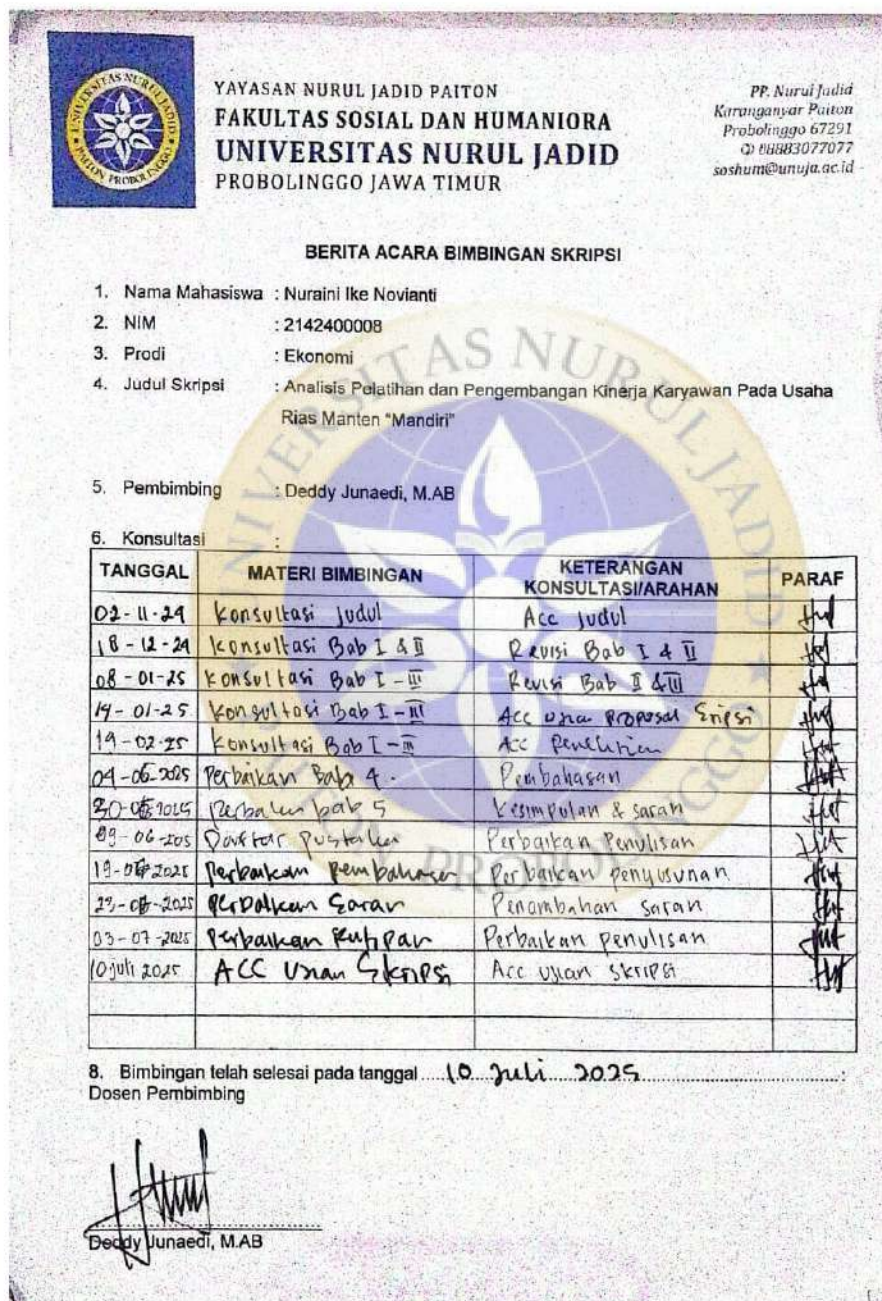 UNIVERSITAS NURUL JADID
PAITON PROBOLINGGO
YAYASAN NURUL JADID PAITON
FAKULTAS SOSIAL DAN HUMANIORA
UNIVERSITAS NURUL JADID
PROBOLINGGO JAWA TIMUR
PP. Nurul Jadid
Karanganyar Paiton
Probolinggo 67291
08883077077
soshum@unuja.ac.id
BERITA ACARA BIMBINGAN SKRIPSI
1. Nama Mahasiswa : Nuraini Ike Novianti
2. NIM : 2142400008
3. Prodi : Ekonomi
4. Judul Skripsi : Analisis Pelatihan dan Pengembangan Kinerja Karyawan Pada Usaha
Rias Manten "Mandiri"
5. Pembimbing : Deddy Junaedi, M.AB
6. Konsultasi :
TANGGAL MATERI BIMBINGAN KETERANGAN KONSULTASI/ARAHAN PARAF
02-11-24 Konsultasi Judul Acc Judul
18-12-24 Konsultasi Bab I & II Revisi Bab I & II
08-01-25 Konsultasi Bab I - III Revisi Bab II & III
14-01-25 Konsultasi Bab I - III Acc Proposal
19-02-25 Konsultasi Bab I - III Acc Penelitian
Perbaikan Bab 4. Pembahasan
bab 5 Kesimpulan & saran
Daftar Pustaka Perbaikan Penulisan
Perbaikan pembahasan Perbaikan penyusunan
Perbaikan Saran Penambahan saran
03-07-2025 Perbaikan Kutipan Perbaikan penulisan
10 juli 2025 ACC Ujian Skripsi Acc ujian skripsi
8. Bimbingan telah selesai pada tanggal 10 Juli 2025
Dosen Pembimbing
Deddy Junaedi, M.AB